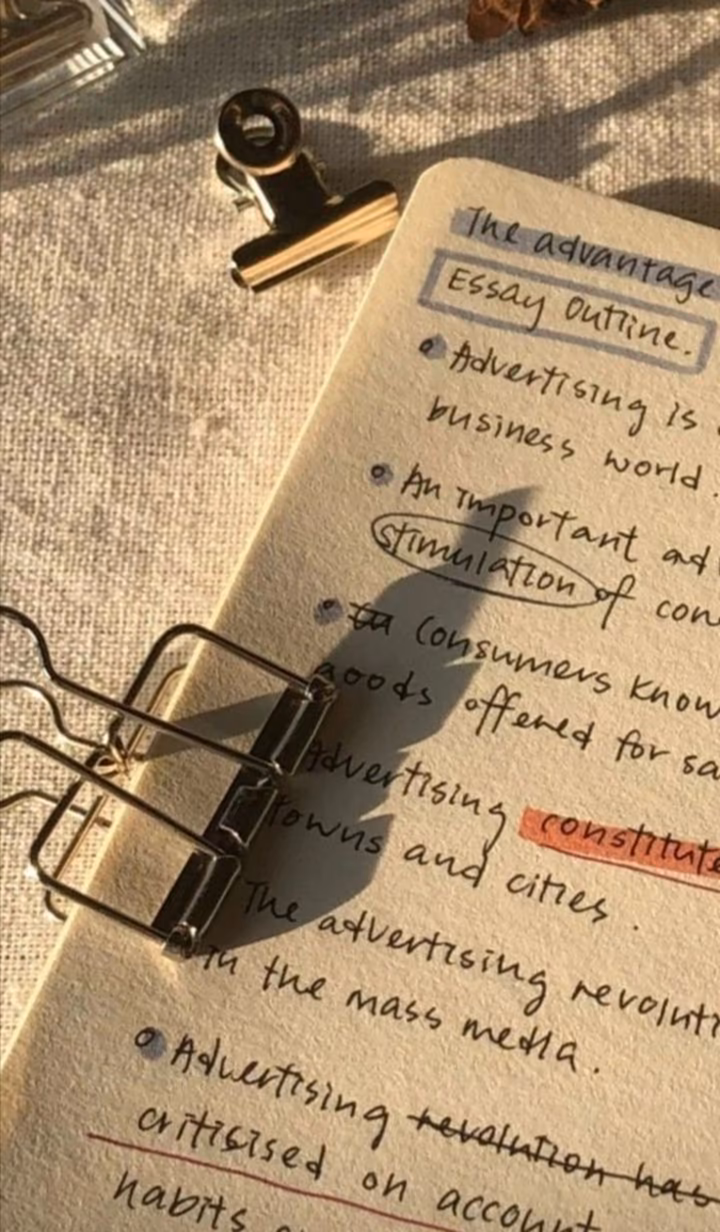 The advantage
Essay Outline.
Advertising is
business world.
An important ad
stimulation of con
In Consumers know
goods offered for sa
Advertising constitute
towns and cities.
The advertising revoluti
in the mass media.
Advertising revolution has
critisised on account
habits